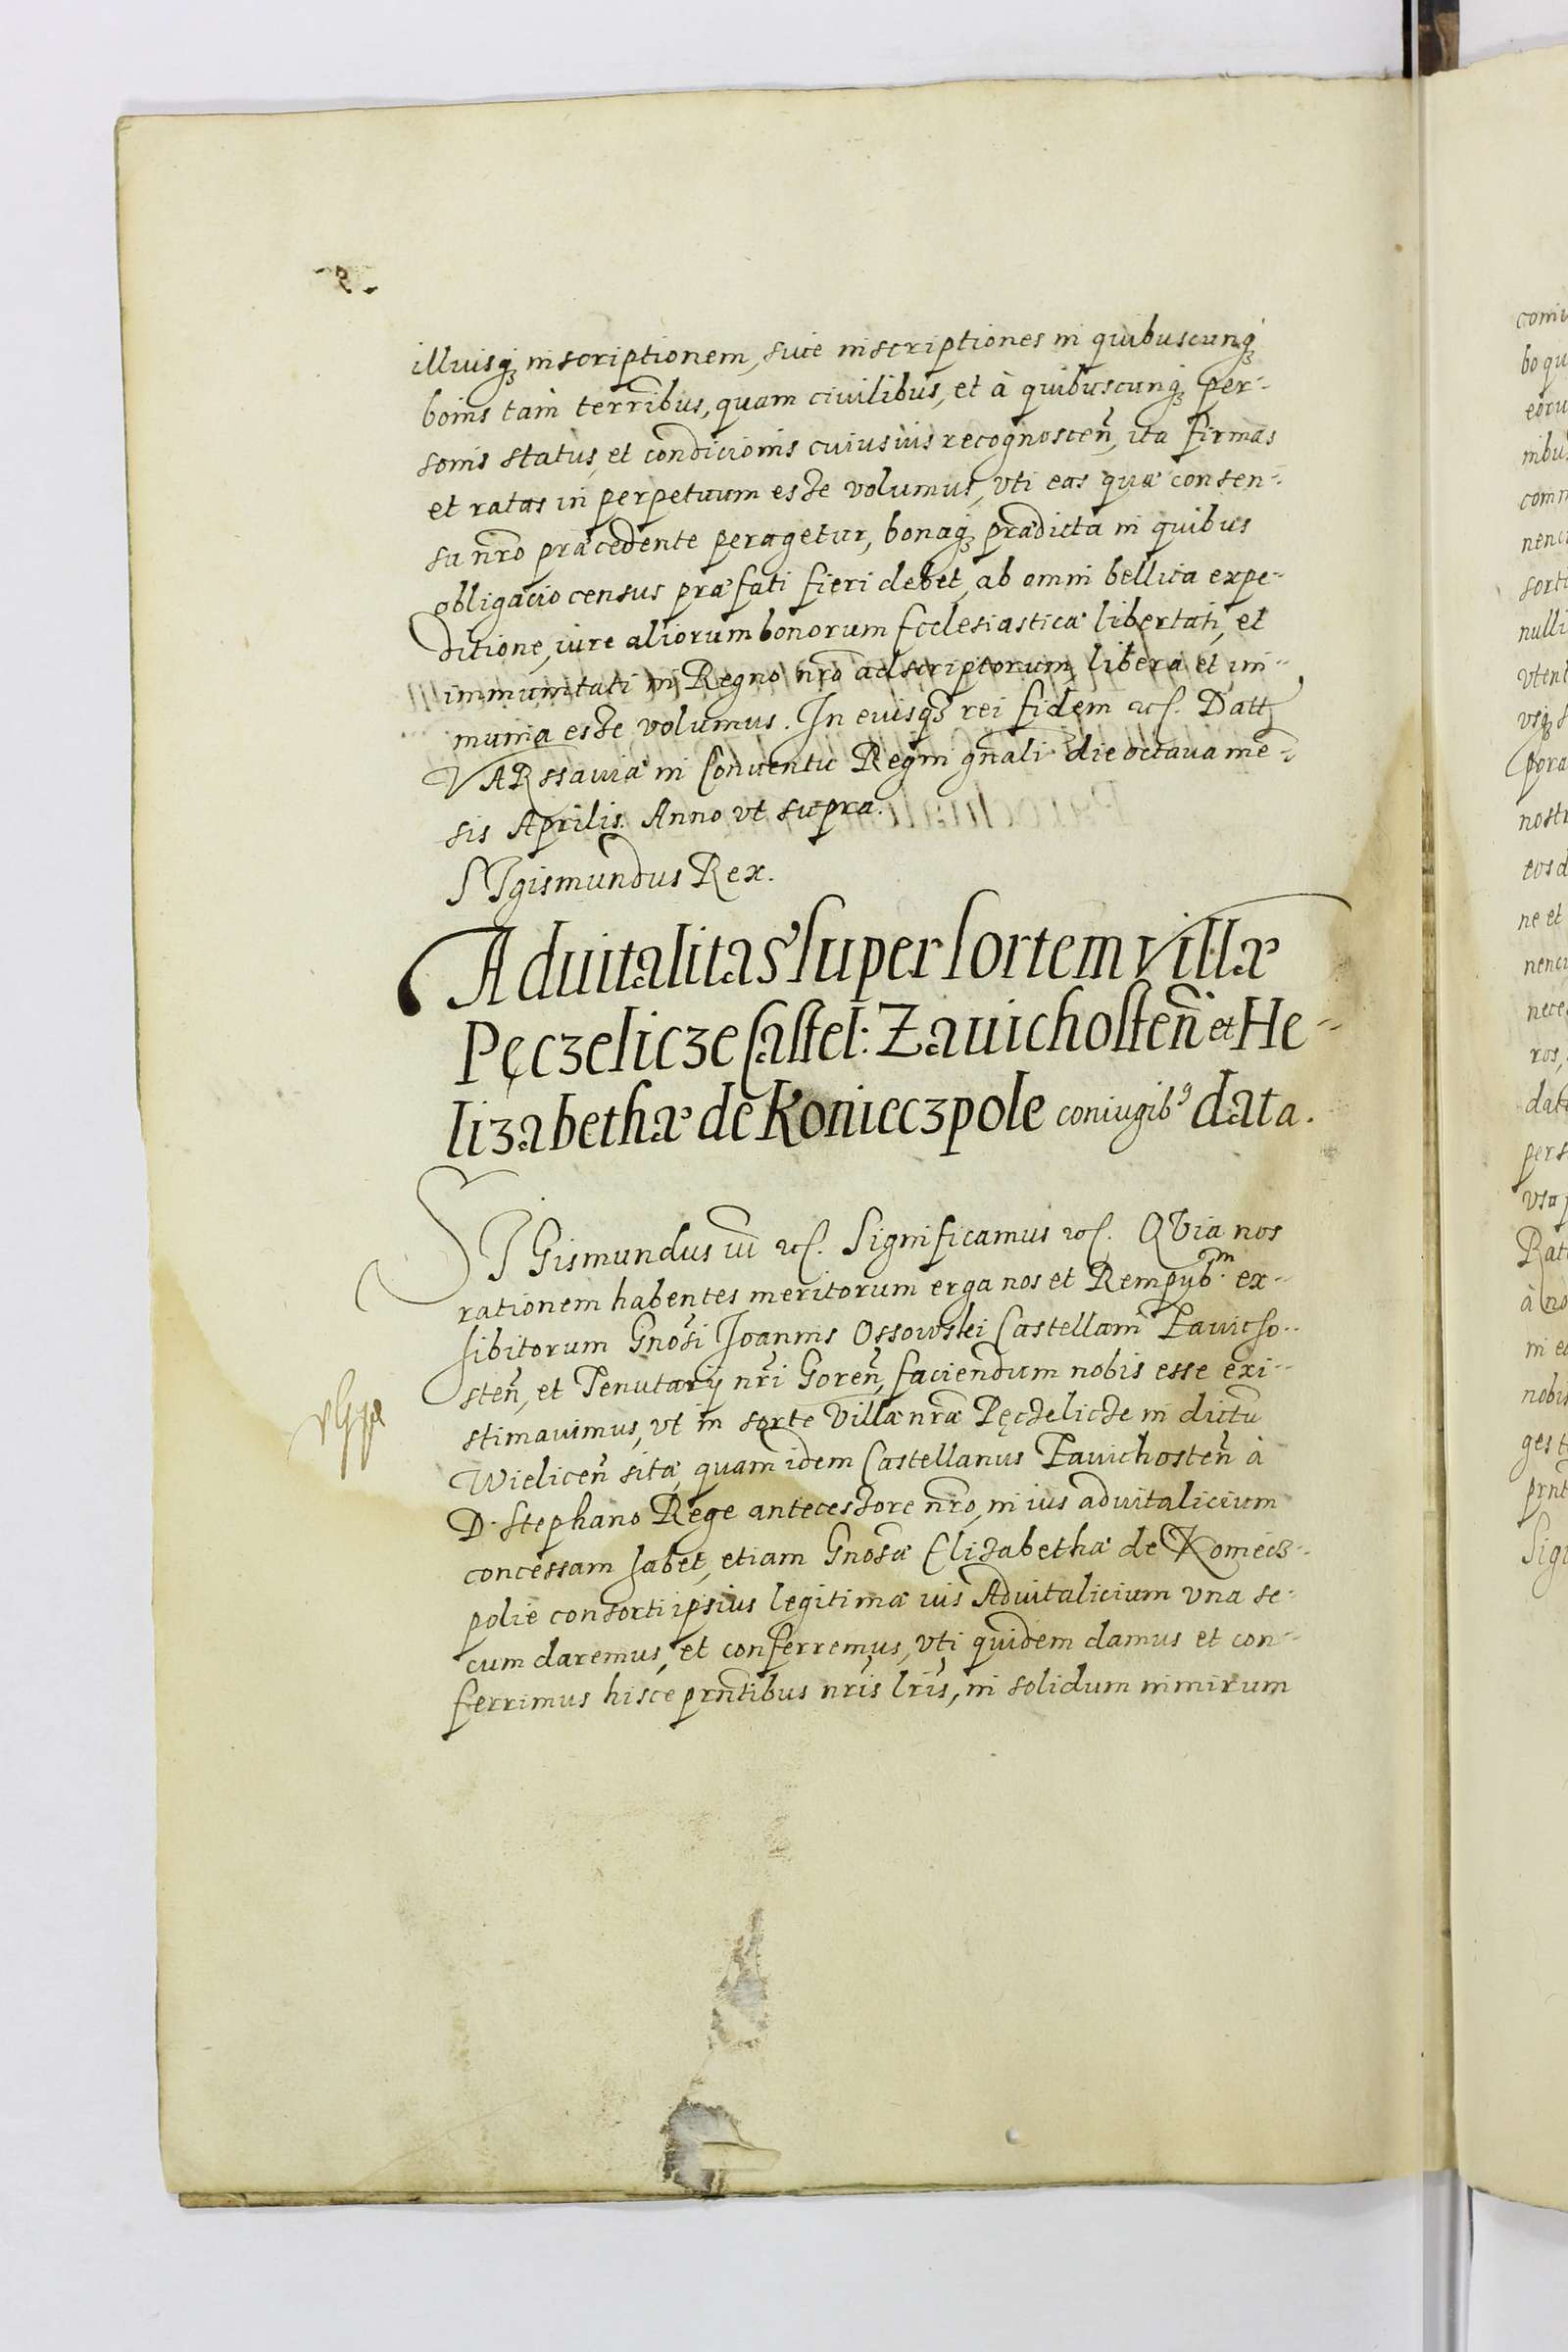 illiusq́ inscriptionem, siue inscriptiones in quibuscunq́
bonis tam terribus, quam ciuilibus, et à quibuscunq́ per-
sonis status, et condicionis cuiusuis recognoscen̄, ita firmas
et ratas in perpetuum esse volumus, vti eas quæ consen-
su nr̄o præcedente peragetur, bonaq́ prædicta in quibus
obligacio census præfati fieri debet, ab omni bellica expe-
ditione, iure aliorum bonorum Ecclesiasticæ libertati, et
immunitati in Regno nr̄o adscriptorum, libera et im-
munia esse volumus. In cuiusq́ rei fidem etc. Datt
VARssauiæ in Conuentu Regni gn̄ali die octaua mē-
sis Aprilis. Anno vt supra.
SIgismundus Rex.
Aduitalitas super sortem villæ
Pęczelicze Castel: Zauichosten̄ et He-
lizabethæ de Konieczpole coniugib9 data.
SIGismundus iii etc. Significamus etc. QVia nos
rationem habentes meritorum erga nos et Rempub.m ex-
hibitorum Gnōsi Joannis Ossowski Castellani Zauicho-
sten̄, et Tenutarij nr̄i Goren̄, faciendum nobis esse exi-
stimauimus, vt in sorte Villæ nr̄æ Pęczelicze in dictu
Wielicen̄ sitæ, quam idem Castellanus Zauichosten̄ à
D. Stephano Rege antecessore nr̄o, in ius aduitalicium
concessam habet, etiam Gnōsæ Elizabethæ de Koniecz-
polie consorti ipsius legitimæ ius Aduitalicium vna se-
cum daremus, et conferremus, vti quidem damus et con-
ferrimus hisce prn̄tibus nr̄is lr̄is, in solidum nimirum